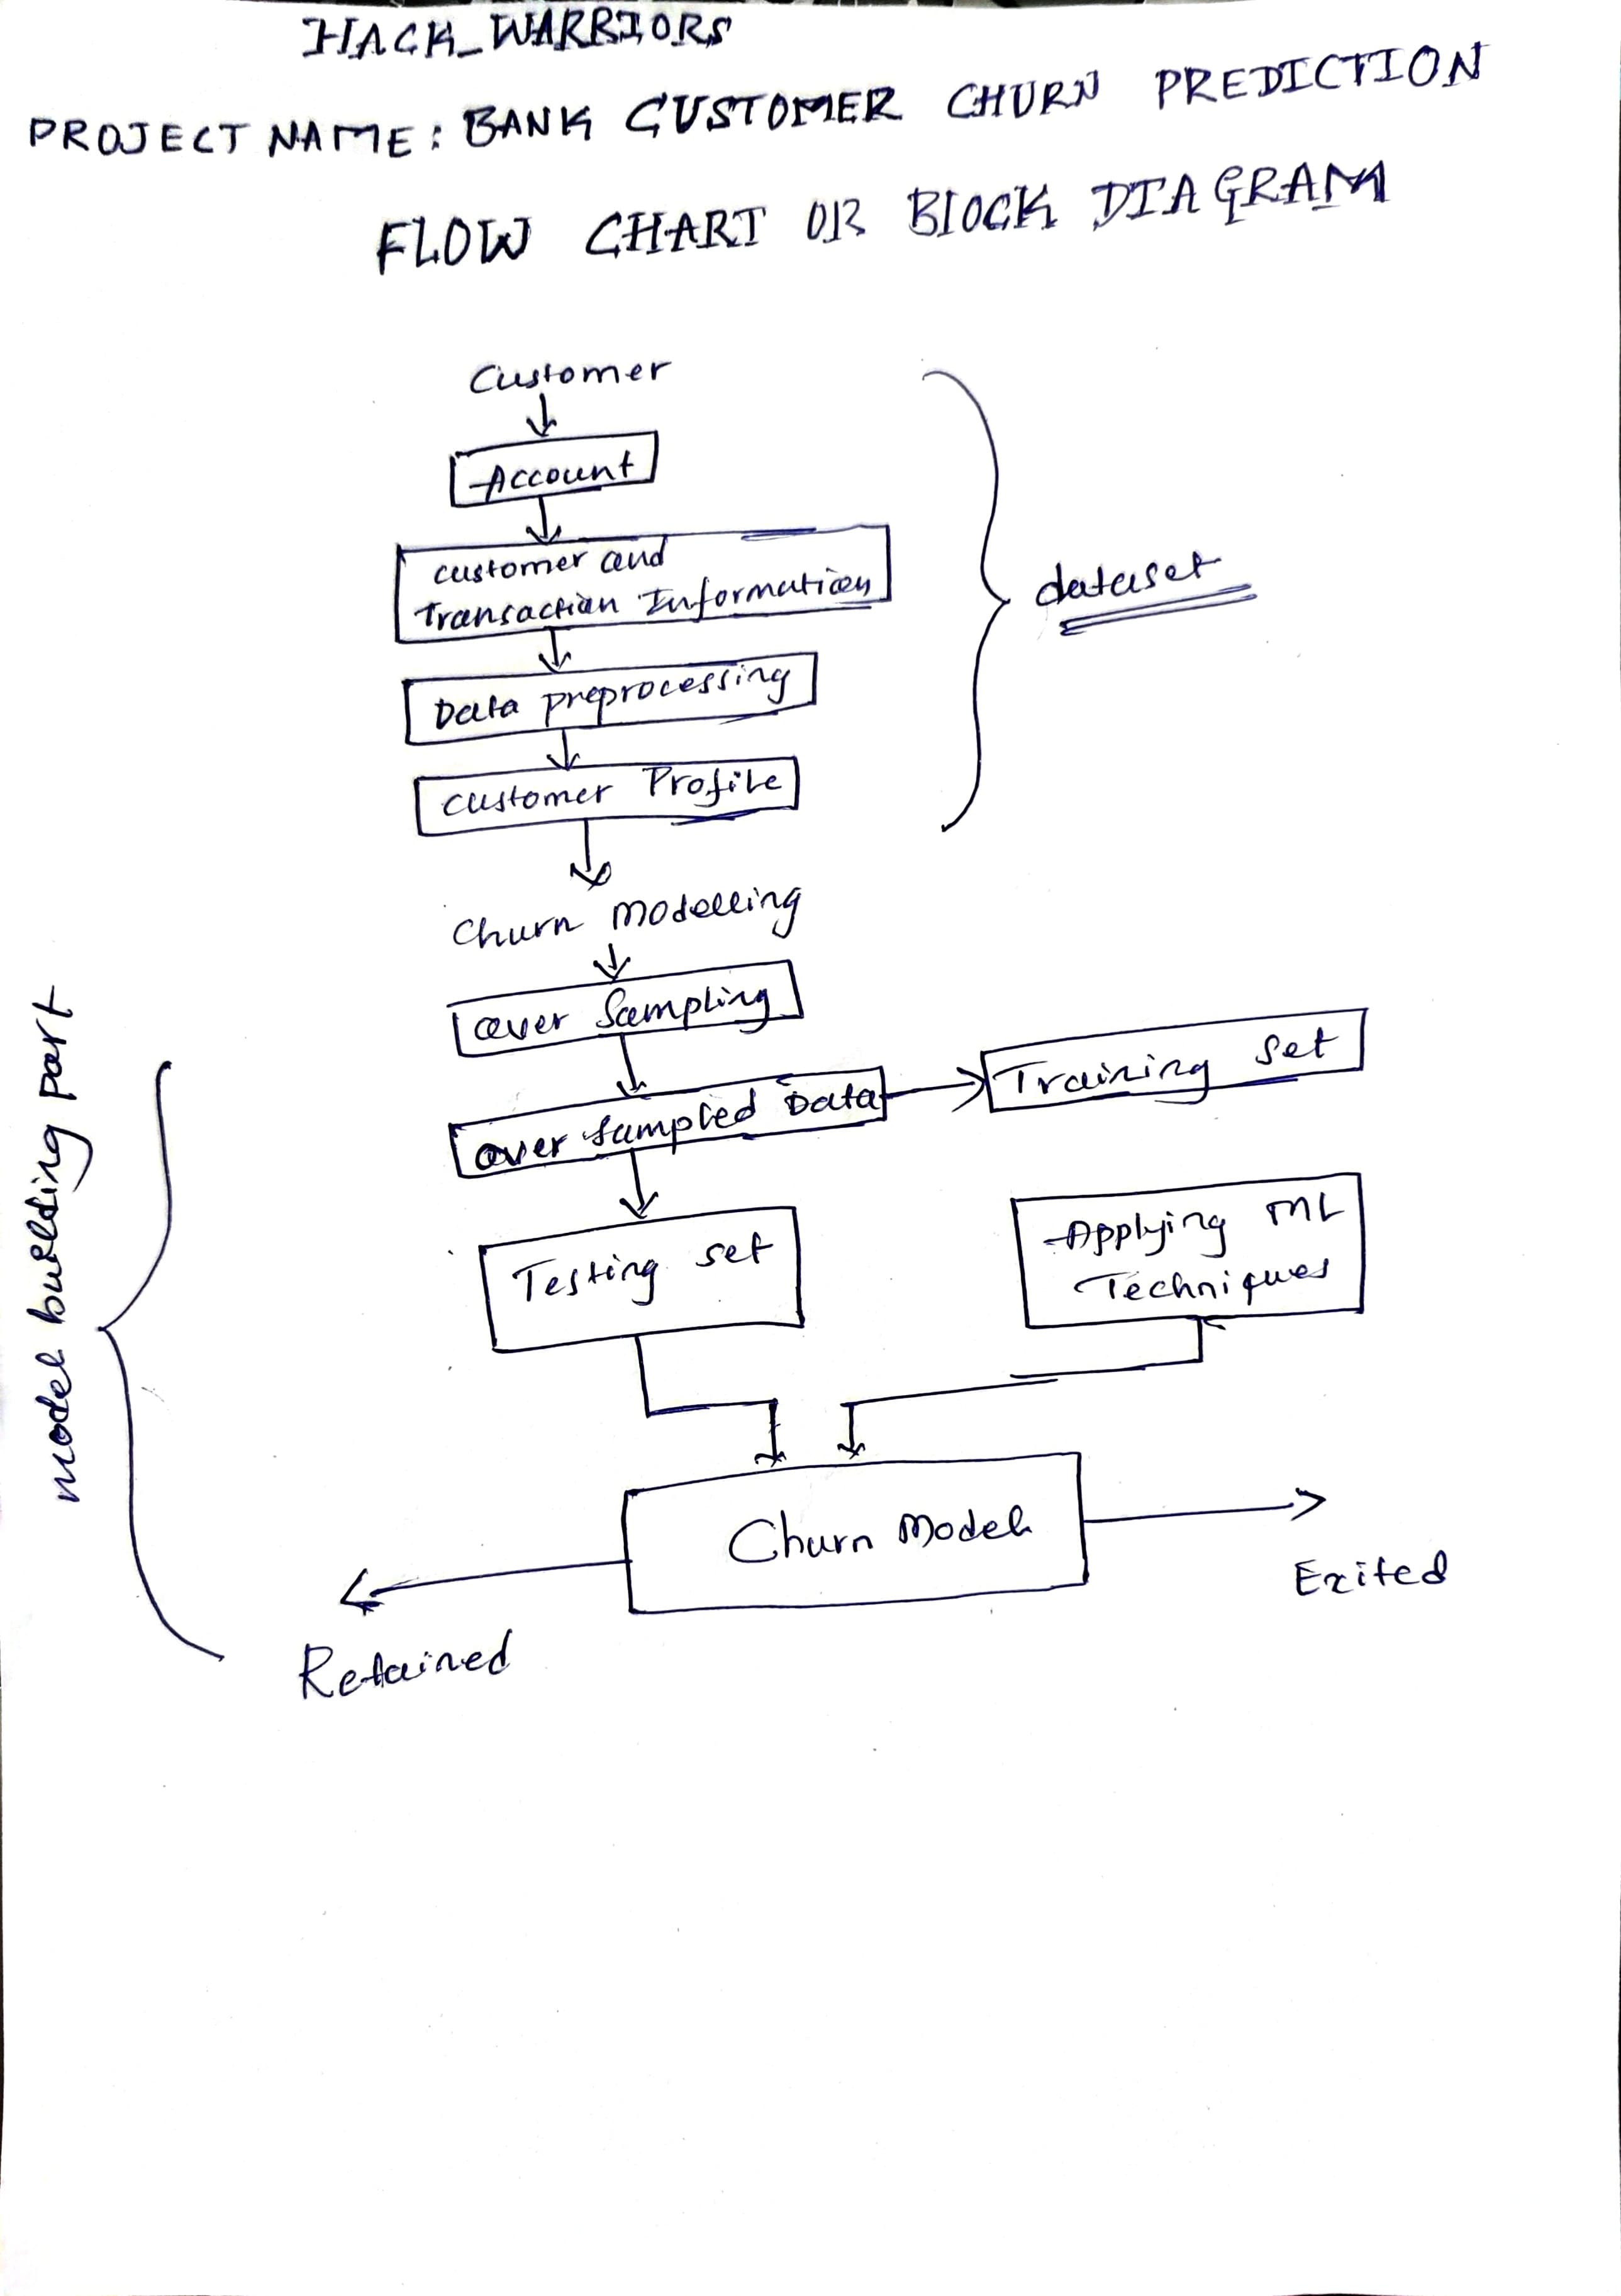 HACK_WARRIORS
PROJECT NAME: BANK CUSTOMER CHURN PREDICTION
FLOW CHART OR BLOCK DIAGRAM
Customer
Account
customer and
Transaction Information
dataset
Data preprocessing
customer Profile
Churn Modelling
over Sampling
Training Set
over Sampled Data
Testing set
Applying ML
Techniques
model building part
Churn Model
Exited
Retained